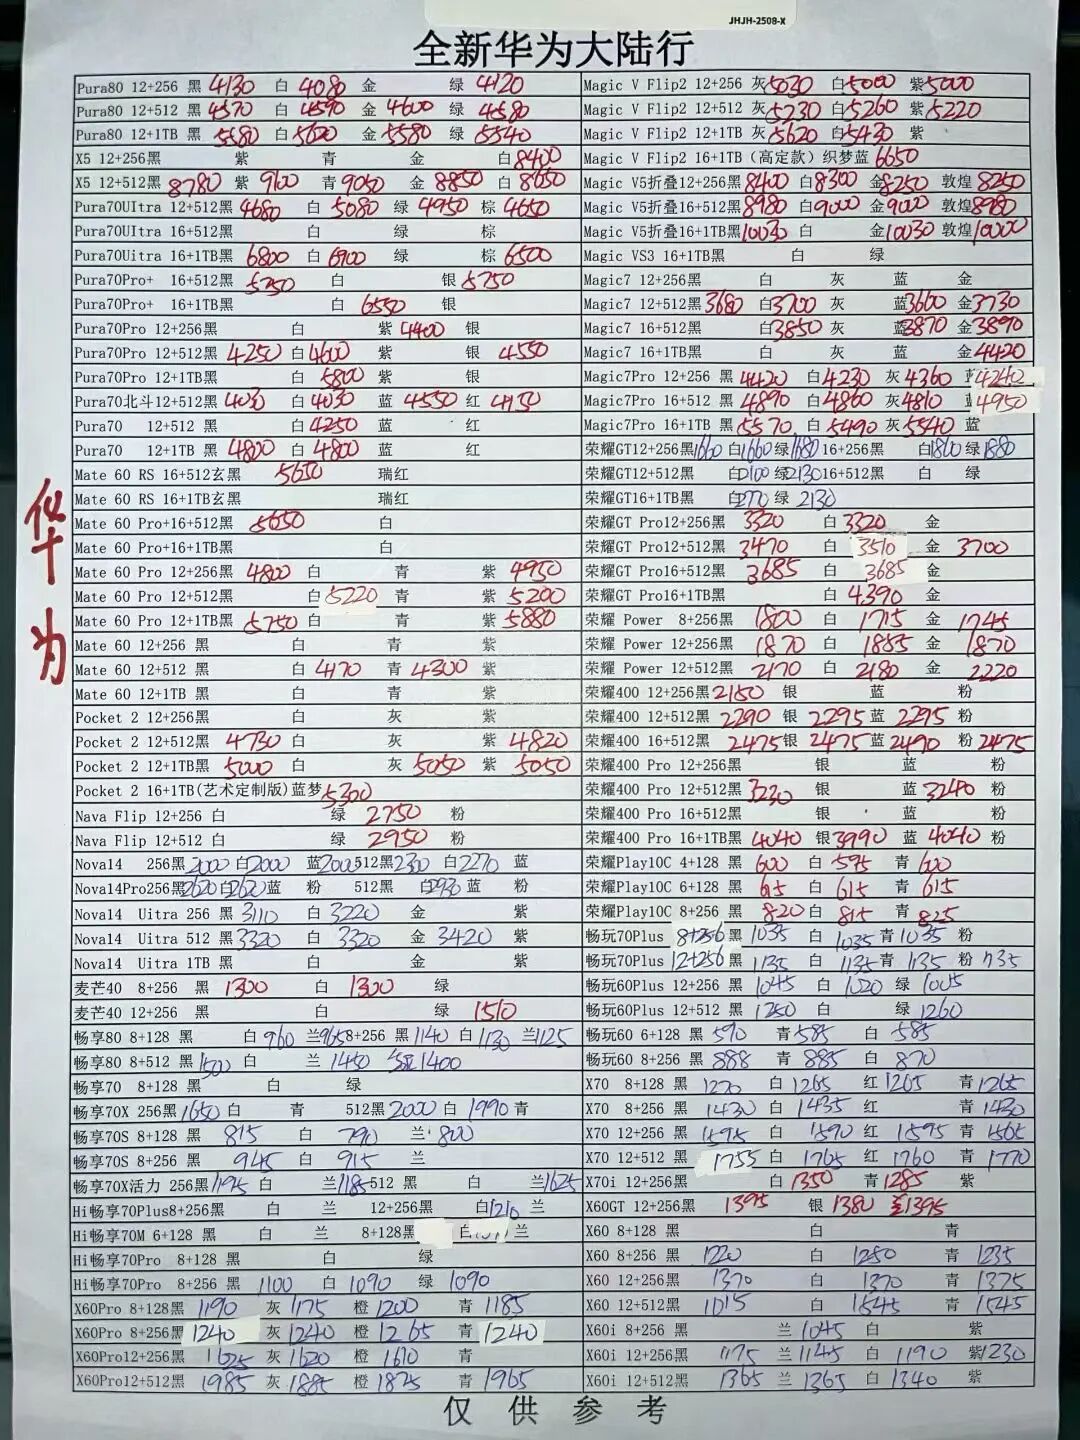 JHJH-2508-X
全新华为大陆行
华为
Pura80 12+256 黑 4130 白 4080 金 绿 4120
Pura80 12+512 黑 4570 白 4590 金 4600 绿 4580
Pura80 12+1TB 黑 5580 白 5620 金 5580 绿 5540
X5 12+256黑 紫 青 金 白 8400
X5 12+512黑 8780 紫 9100 青 9050 金 8850 白 8650
Pura70UItra 12+512黑 4680 白 5080 绿 4950 棕 4650
Pura70UItra 16+512黑 白 绿 棕
Pura70Uitra 16+1TB黑 6800 白 6900 绿 棕 6500
Pura70Pro+ 16+512黑 5750 白 银 5750
Pura70Pro+ 16+1TB黑 白 6550 银
Pura70Pro 12+256黑 白 紫 4400 银
Pura70Pro 12+512黑 4250 白 4600 紫 银 4550
Pura70Pro 12+1TB黑 白 5800 紫 银
Pura70北斗12+512黑 4030 白 4030 蓝 4550 红 4150
Pura70 12+512 黑 白 4250 蓝 红
Pura70 12+1TB 黑 4800 白 4800 蓝 红
Mate 60 RS 16+512玄黑 5650 瑞红
Mate 60 RS 16+1TB玄黑 瑞红
Mate 60 Pro+16+512黑 5650 白
Mate 60 Pro+16+1TB黑 白
Mate 60 Pro 12+256黑 4800 白 青 紫 4950
Mate 60 Pro 12+512黑 白 5220 青 紫 5200
Mate 60 Pro 12+1TB黑 5750 白 青 紫 5880
Mate 60 12+256 黑 白 青 紫
Mate 60 12+512 黑 白 4170 青 4300 紫
Mate 60 12+1TB 黑 白 青 紫
Pocket 2 12+256黑 白 灰 紫
Pocket 2 12+512黑 4730 白 灰 紫 4820
Pocket 2 12+1TB黑 5000 白 灰 5050 紫 5050
Pocket 2 16+1TB(艺术定制版)蓝梦 5300
Nava Flip 12+256 白 绿 2750 粉
Nava Flip 12+512 白 绿 2950 粉
Nova14 256黑 2000 白 2000 蓝 2000 512黑 2230 白 2270 蓝
Nova14Pro256黑 2620 白 2620 蓝 粉 512黑 白 2930 蓝 粉
Nova14 Uitra 256 黑 3110 白 3220 金 紫
Nova14 Uitra 512 黑 3320 白 3320 金 3420 紫
Nova14 Uitra 1TB 黑 白 金 紫
麦芒40 8+256 黑 1300 白 1300 绿
麦芒40 12+256 黑 白 1510
畅享80 8+128 黑 白 960 兰 965 8+256 黑 1140 白 1130 兰 1125
畅享80 8+512 黑 1500 白 兰 1450 1400
畅享70 8+128 黑 白 绿
畅享70X 256黑 1650 白 青 512黑 2000 白 1990 青
畅享70S 8+128 黑 815 白 790 兰 800
畅享70S 8+256 黑 945 白 915 兰
畅享70X活力 256黑 1195 白 兰 1185 512 黑 白 兰 1625
Hi畅享70Plus8+256黑 白 兰 12+256黑 白 1210 兰
Hi畅享70M 6+128 黑 白 兰 8+128黑 白 兰
Hi畅享70Pro 8+128 黑 白 绿
Hi畅享70Pro 8+256 黑 1100 白 1090 绿 1090
X60Pro 8+128黑 1190 灰 1175 橙 1200 青 1185
X60Pro 8+256黑 1240 灰 1240 橙 1265 青 1240
X60Pro12+256黑 1625 灰 1620 橙 1610 青
X60Pro12+512黑 1985 灰 1885 橙 1825 青 1965
Magic V Flip2 12+256 灰 5030 白 5000 紫 5000
Magic V Flip2 12+512 灰 5230 白 5260 紫 5220
Magic V Flip2 12+1TB 灰 5620 白 5430 紫
Magic V Flip2 16+1TB（高定款）织梦蓝 6650
Magic V5折叠12+256黑 8400 白 8300 金 8250 敦煌 8250
Magic V5折叠16+512黑 8980 白 9000 金 9000 敦煌 8980
Magic V5折叠16+1TB黑 10030 白 金 10030 敦煌 10000
Magic VS3 16+1TB黑 白 绿
Magic7 12+256黑 白 灰 蓝 金
Magic7 12+512黑 3680 白 3700 灰 蓝 3660 金 3730
Magic7 16+512黑 白 3850 灰 蓝 3870 金 3890
Magic7 16+1TB黑 白 灰 蓝 金 4420
Magic7Pro 12+256 黑 4420 白 4230 灰 4360 蓝 4240
Magic7Pro 16+512 黑 4890 白 4860 灰 4810 蓝 4950
Magic7Pro 16+1TB 黑 5570 白 5490 灰 5540 蓝
荣耀GT12+256黑 1660 白 1660 绿 1680 16+256黑 白 1860 绿 1880
荣耀GT12+512黑 白 2100 绿 2130 16+512黑 白 绿
荣耀GT16+1TB黑 白 绿 2130
荣耀GT Pro12+256黑 3320 白 3320 金
荣耀GT Pro12+512黑 3470 白 3510 金 3700
荣耀GT Pro16+512黑 3685 白 3685 金
荣耀GT Pro16+1TB黑 白 4390 金
荣耀 Power 8+256黑 1800 白 1715 金 1745
荣耀 Power 12+256黑 1870 白 1885 金 1870
荣耀 Power 12+512黑 2170 白 2180 金 2220
荣耀400 12+256黑 2150 银 蓝 粉
荣耀400 12+512黑 2290 银 2295 蓝 2295 粉
荣耀400 16+512黑 2475 银 2475 蓝 2490 粉 2475
荣耀400 Pro 12+256黑 银 蓝 粉
荣耀400 Pro 12+512黑 3230 银 蓝 3240 粉
荣耀400 Pro 16+512黑 银 蓝 粉
荣耀400 Pro 16+1TB黑 4040 银 3990 蓝 4040 粉
荣耀Play10C 4+128 黑 600 白 595 青 600
荣耀Play10C 6+128 黑 615 白 615 青 615
荣耀Play10C 8+256 黑 820 白 815 青 825
畅玩70Plus 8+256 黑 1035 白 1035 青 1035 粉
畅玩70Plus 12+256 黑 1135 白 1135 青 1135 粉 1135
畅玩60Plus 12+256 黑 1045 白 1020 绿 1005
畅玩60Plus 12+512 黑 1250 白 绿 1260
畅玩60 6+128 黑 570 青 585 白 585
畅玩60 8+256 黑 888 青 885 白 870
X70 8+128 黑 1270 白 1265 红 1265 青 1265
X70 8+256 黑 1430 白 1435 红 青 1430
X70 12+256 黑 1595 白 1590 红 1595 青 1565
X70 12+512 黑 1755 白 1765 红 1760 青 1770
X70i 12+256黑 白 1350 青 1285 紫
X60GT 12+256黑 1395 银 1380 1395
X60 8+128黑 白 青
X60 8+256 黑 1220 白 1250 青 1235
X60 12+256黑 1370 白 1370 青 1375
X60 12+512黑 白 1545 青 1545
X60i 8+256 黑 兰 1045 白 紫
X60i 12+256黑 1175 兰 1145 白 1190 紫 1230
X60i 12+512黑 1365 兰 1365 白 1340 紫
仅供参考